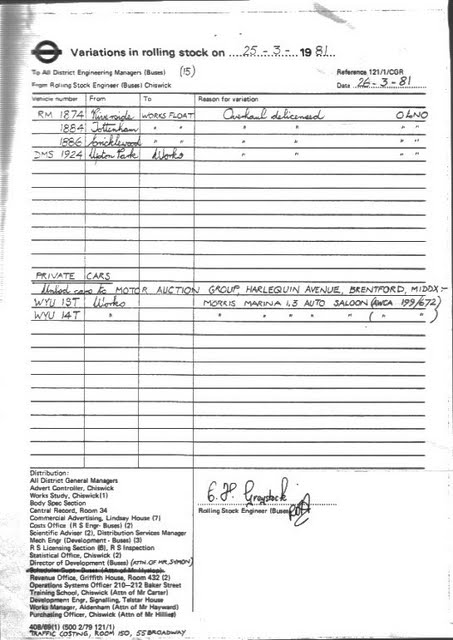 Variations in rolling stock on 25-3- 1981
To All District Engineering Managers (Buses) (15) Reference 121/1/CGR
From Rolling Stock Engineer (Buses) Chiswick Date 26-3-81
Vehicle number From To Reason for variation
RM 1874 Riverside WORKS FLOAT Overhaul delicensed O LNO
1884 Tottenham " " " " " "
1886 Cricklewood " " " " " "
DMS 1924 Upton Park Works " " " "
PRIVATE CARS
cars to MOTOR AUCTION GROUP, HARLEQUIN AVENUE, BRENTFORD, MIDDX:-
WYU 13T Works MORRIS MARINA 1.3 AUTO SALOON (AWCA 199/672)
WYU 14T " " " " " " ( " " )
Distribution:
All District General Managers
Advert Controller, Chiswick
Works Study, Chiswick (1)
Body Spec Section
Central Record, Room 34
Commercial Advertising, Lindsay House (7)
Costs Office (R S Engr- Buses) (2)
Scientific Adviser (2), Distribution Services Manager
Mech Engr (Development - Buses) (3)
R S Licensing Section (8), R S Inspection
Statistical Office, Chiswick (2)
Director of Development (Buses) (ATTN. OF MR. SYMON)
Schedules Supt - Buses (Attn of Mr Hyslop)
Revenue Office, Griffith House, Room 432 (2)
Operations Systems Officer 210-212 Baker Street
Training School, Chiswick (Attn of Mr Carter)
Development Engr, Signalling, Telstar House
Works Manager, Aldenham (Attn of Mr Hayward)
Purchasing Officer, Chiswick (Attn of Mr Hillier)
E. J. Greystock
Rolling Stock Engineer (Buses)
408/69(1) (500 2/79 121/1)
TRAFFIC COSTING, ROOM 150, 55 BROADWAY